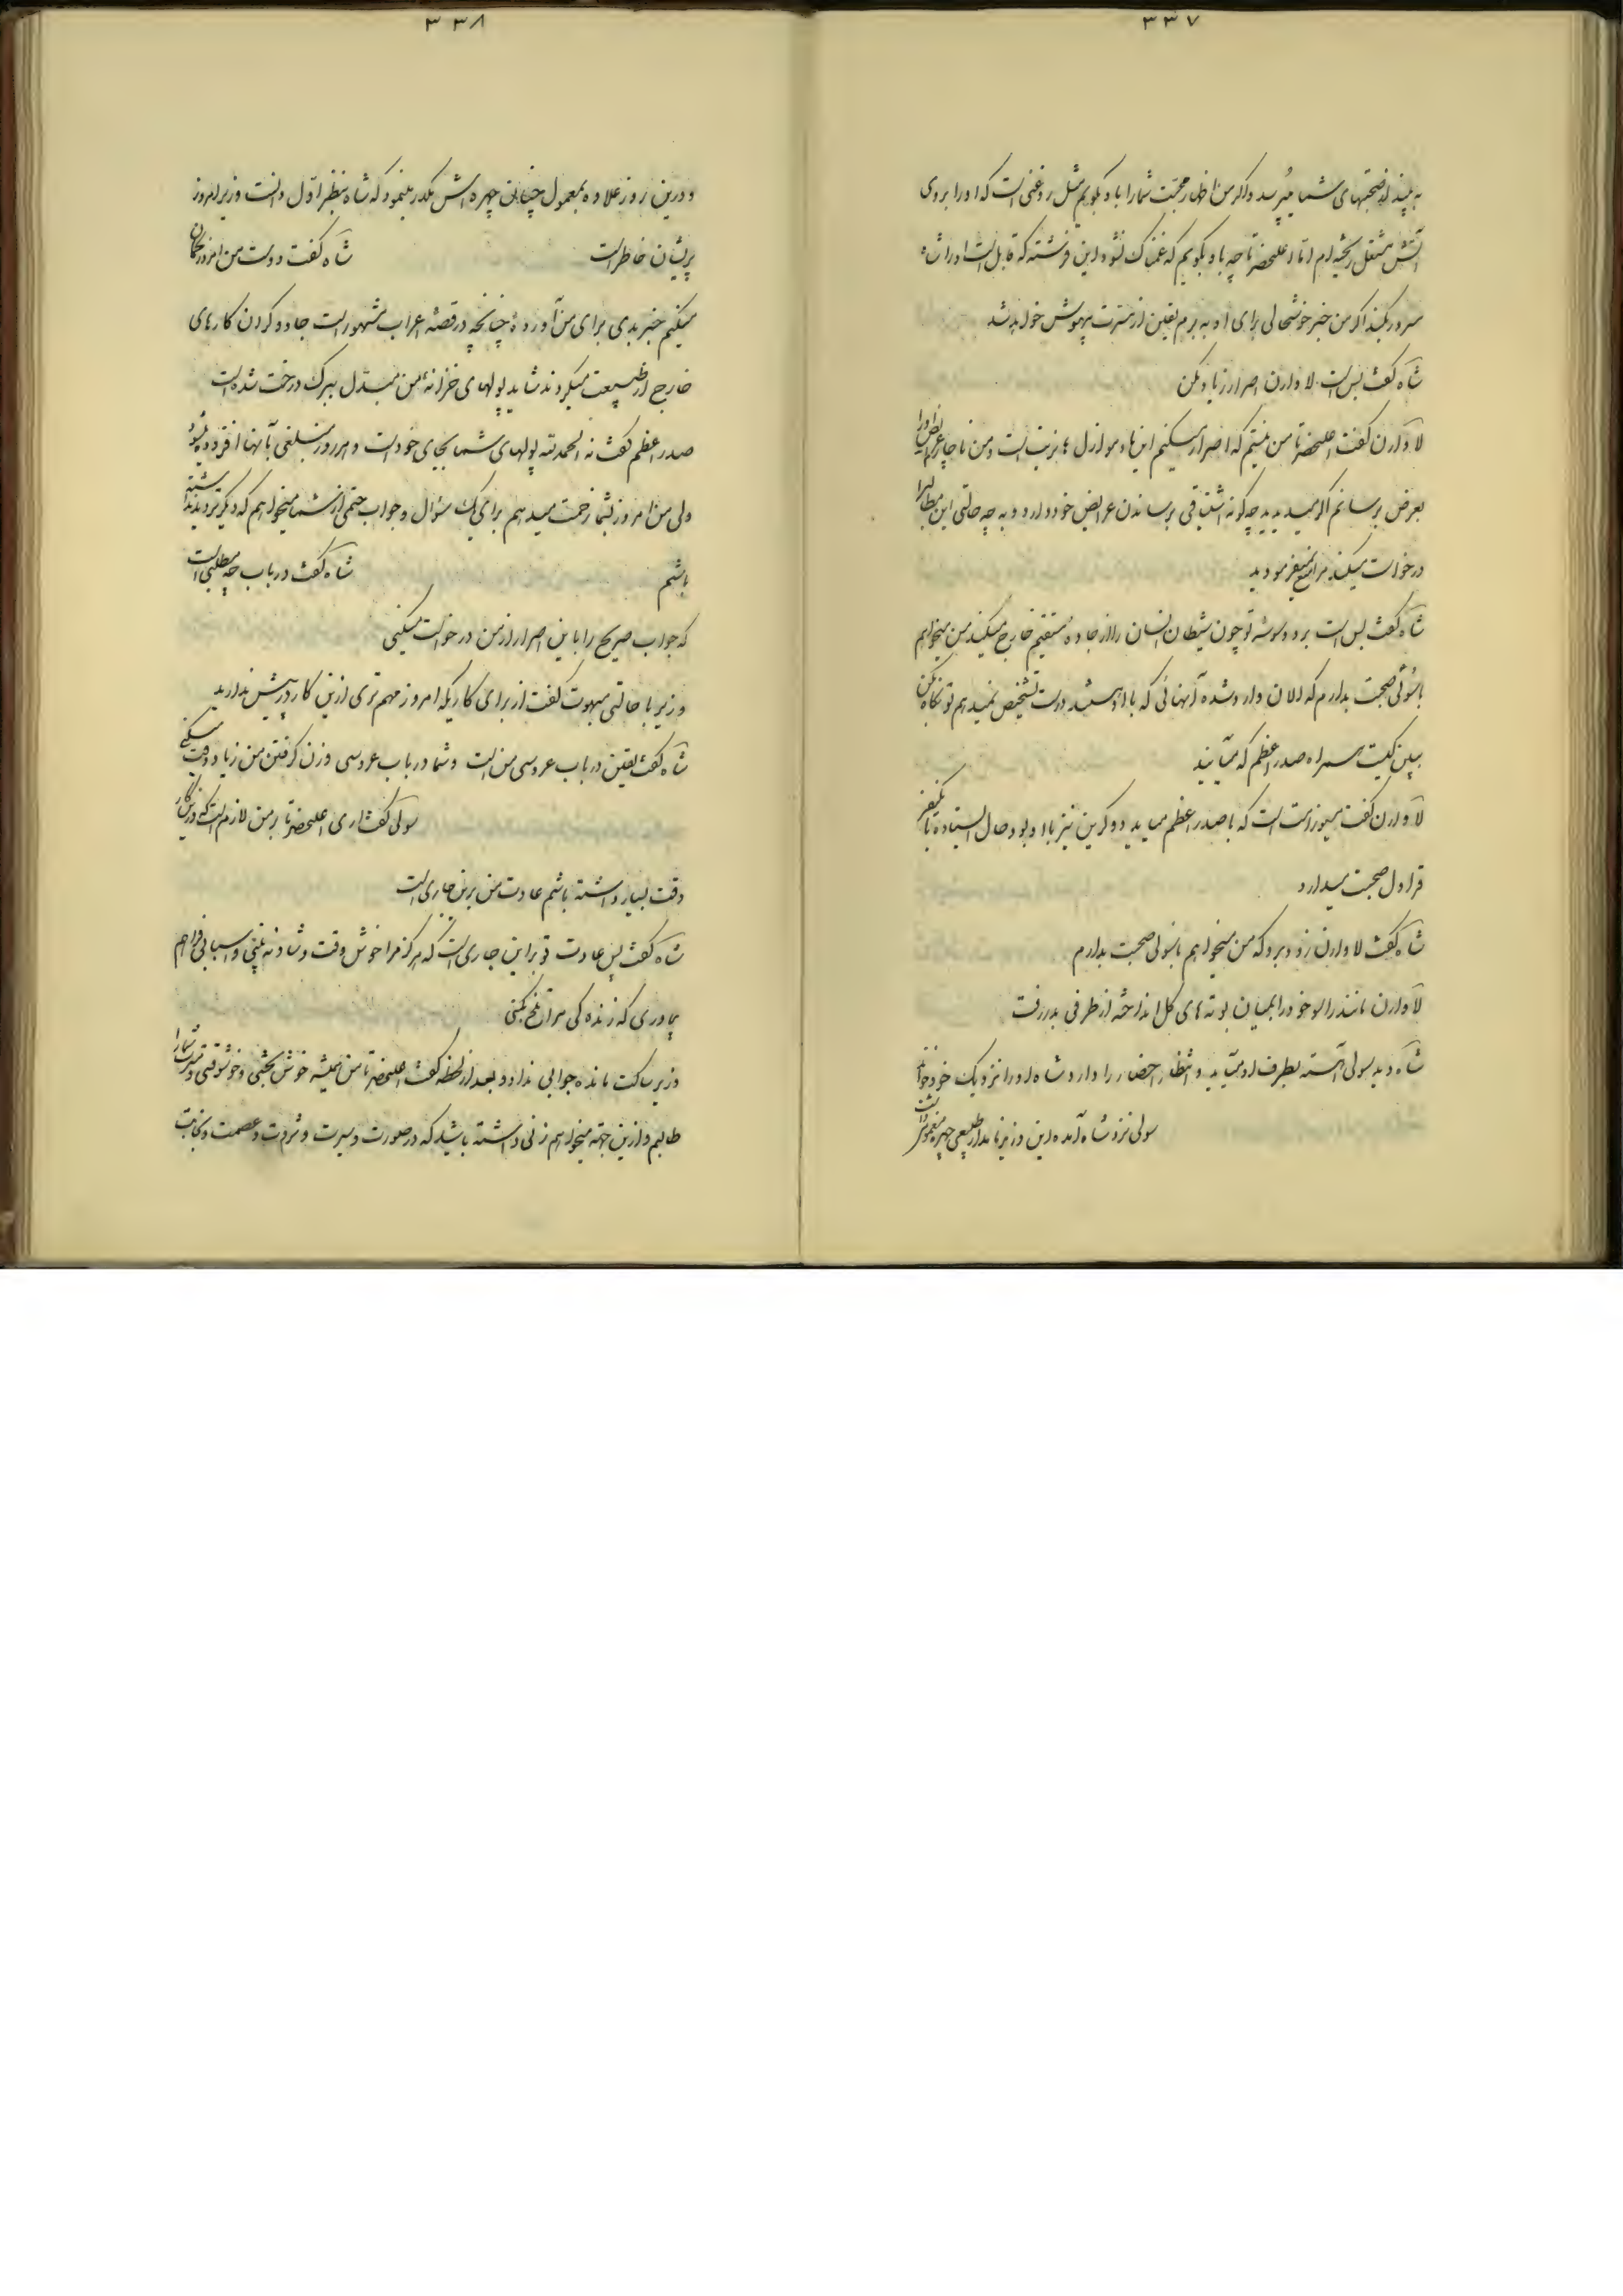 ۳۳۷
به بیند از صحبتهای شما میپرسد و اگر من اظهار محبت شما را باو بگویم مثل روغنی است که او را بروی
آتش مشتعل ریخته‌ام اما اعلیحضرتا چه باو بگویم که غمناک نشود این فرشته که قابل است او را شاه
مسرور بکند اگر من خبر خوشحالی برای او به برم یقین از مسرت بیهوش خواهد شد
شاه گفت بس است لاوارن اصرار زیاد مکن
لاوارن گفت اعلیحضرتا من نیستم که اصرار میکنم اینها دموازل بزنیت است و من ناچارم
بعرض برسانم اگر میدیدید چگونه اشتیاقی برساندن عرایض خود دارد و به چه حالتی این مطالب را
درخواست میکند مرا منع نمیفرمودید
شاه گفت بس است برو وسوسه تو چون شیطان انسان را از جاده مستقیم خارج میکند من میخواهم
با سولی صحبت بدارم که الان وارد شده آنهائی که با او هستند درست تشخیص نمیدهم تو نگاه بکن
ببین کیست همراه صدر اعظم که میآیند
لاوارن گفت مسیو زامت است که با صدر اعظم میآید دوکرین نیز با او بود حال ایستاده با یکنفر
قراول صحبت میدارد
شاه گفت لاوارن زود برو که من میخواهم با سولی صحبت بدارم
لاوارن مانند راسو خود را بمیان بوته های گل انداخته از طرفی بدر رفت
شاه دید سولی آهسته بطرف او میآید و انتظار احضار را دارد شاه او را نزدیک خود خواند
سولی نزد شاه آمده این وزیر نامدار طبیعی چهره
۳۳۸
و درین روز علاوه بمعمول چنان چهره‌اش مکدر مینمود که شاه بنظر اول دانست وزیر امروز
پریشان خاطر است شاه گفت دوست من امروز گمان
میکنم خبر بدی برای من آورده‌ چنانچه در قصه اعراب مشهور است جادوگران کارهای
خارج از طبیعت میکردند شاید پولهای خزانه من مبدل ببرگ درخت شده است
صدر اعظم گفت نه الحمدلله پولهای شما بجای خود است و هر روز مبلغی بآنها افزوده میشود
ولی من امروز بشما زحمت میدهم برای یک سؤال و جواب حتمی از شما میخواهم که دیگر تردید نداشته
باشم شاه گفت در باب چه مطلبی است
که جواب صریح را باین اصرار از من درخواست میکنی
وزیر با حالتی مبهوت گفت از برای کاریکه امروز مهم تری ازین کار در پیش ندارید
شاه گفت یقین در باب عروسی من است و شما در باب عروسی و زن گرفتن من زیاد دقت میکنی
سولی گفت آری اعلیحضرتا بر من لازم است که در این کار
دقت بسیار داشته باشم عادت من برین جاری است
شاه گفت پس عادت تو براین جاری است که هرگز مرا خوش وقت و شاد نه بینی و اسبابی فراهم
بیاوری که زنده گی مرا تلخ بکنی
وزیر ساکت مانده جوابی نداد و بعد از لحظه گفت اعلیحضرتا من همیشه خوش بختی و خوشوقتی و مسرت شما را
طالبم و ازین جهة میخواهم زنی داشته باشید که در صورت و سیرت و ثروت و عصمت و نجابت